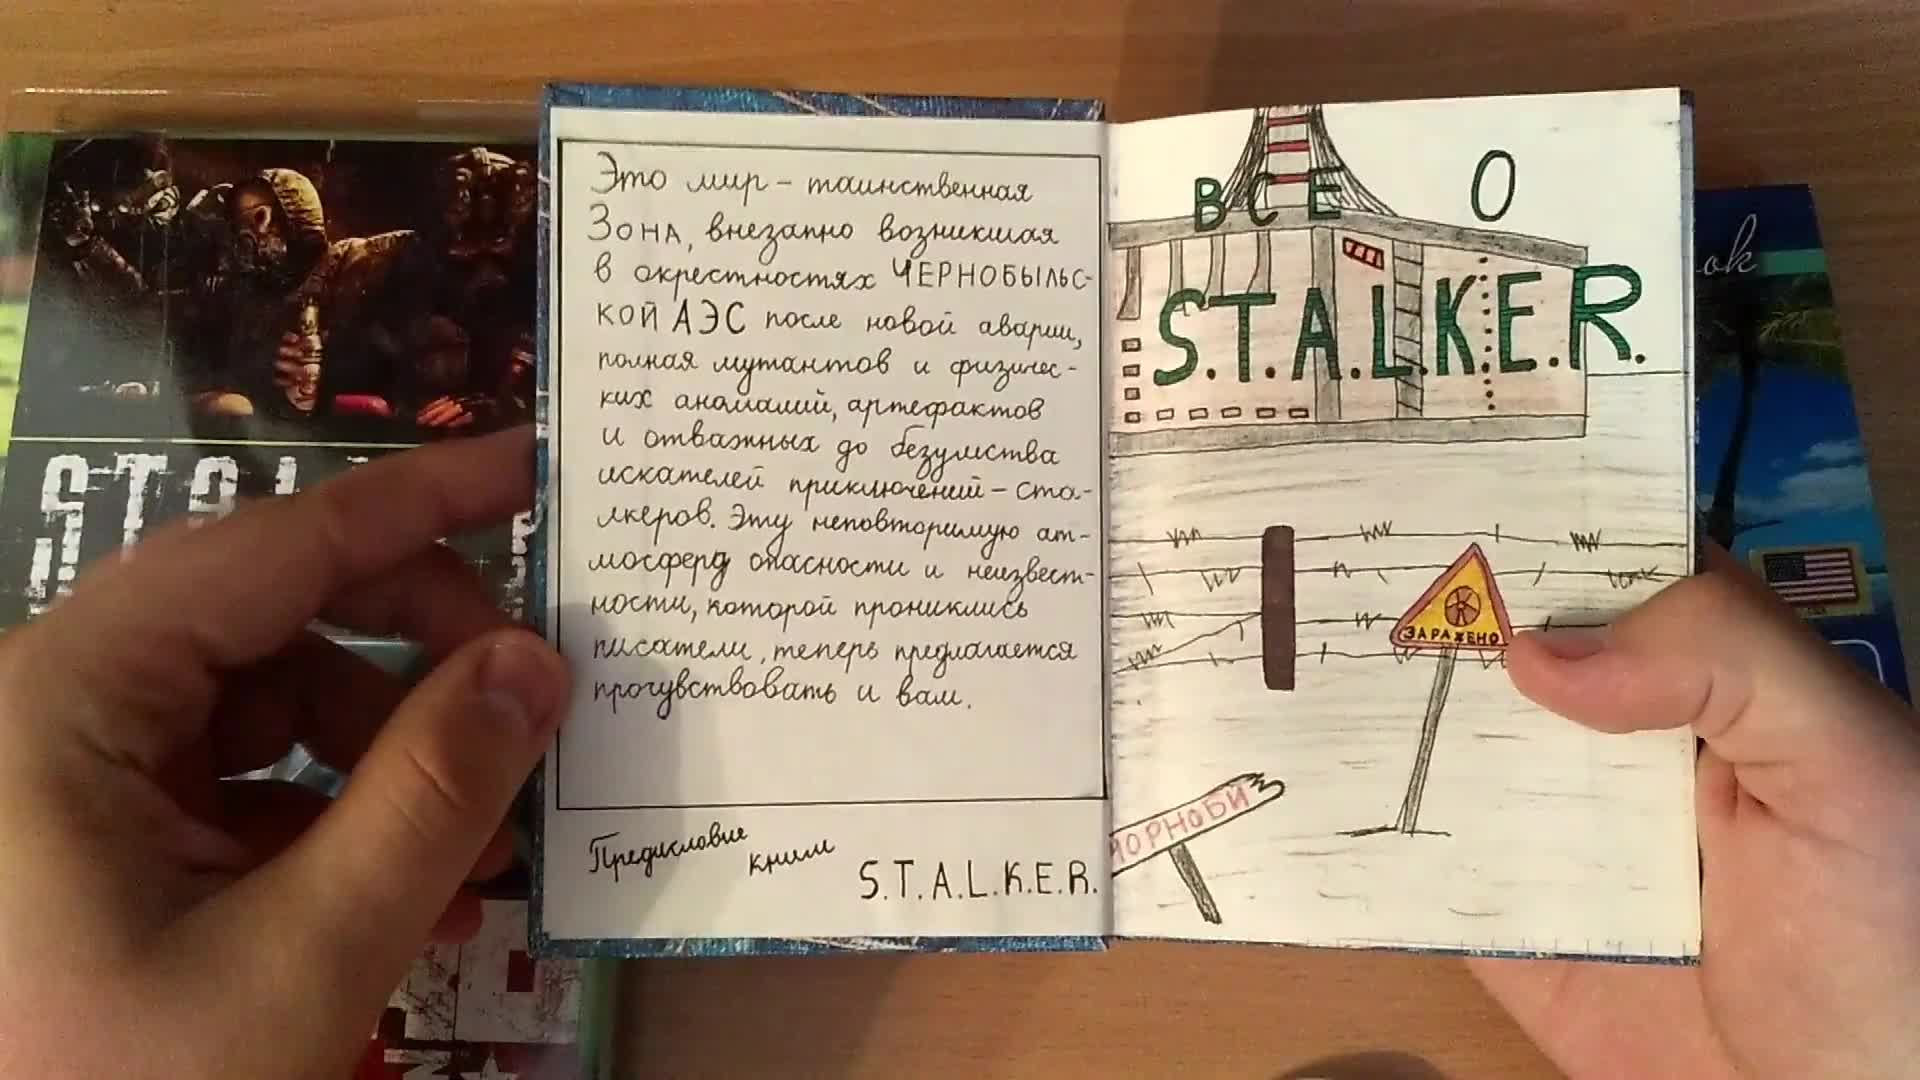 Это мир – таинственная
Зона, внезапно возникшая
в окрестностях ЧЕРНОБЫЛЬС-
КОЙ АЭС после новой аварии,
полная мутантов и физичес-
ких аномалий, артефактов
и отважных до безумства
искателей приключений – ста-
лкеров. Эту неповторимую ат-
мосферу опасности и неизвест-
ности, которой прониклись
писатели, теперь предлагается
прочувствовать и вам.
Предисловие
книги
S.T.A.L.K.E.R.
ВСЕ О
S.T.A.L.K.E.R.
ЗАРАЖЕНО
ЧОРНОБИ
ok